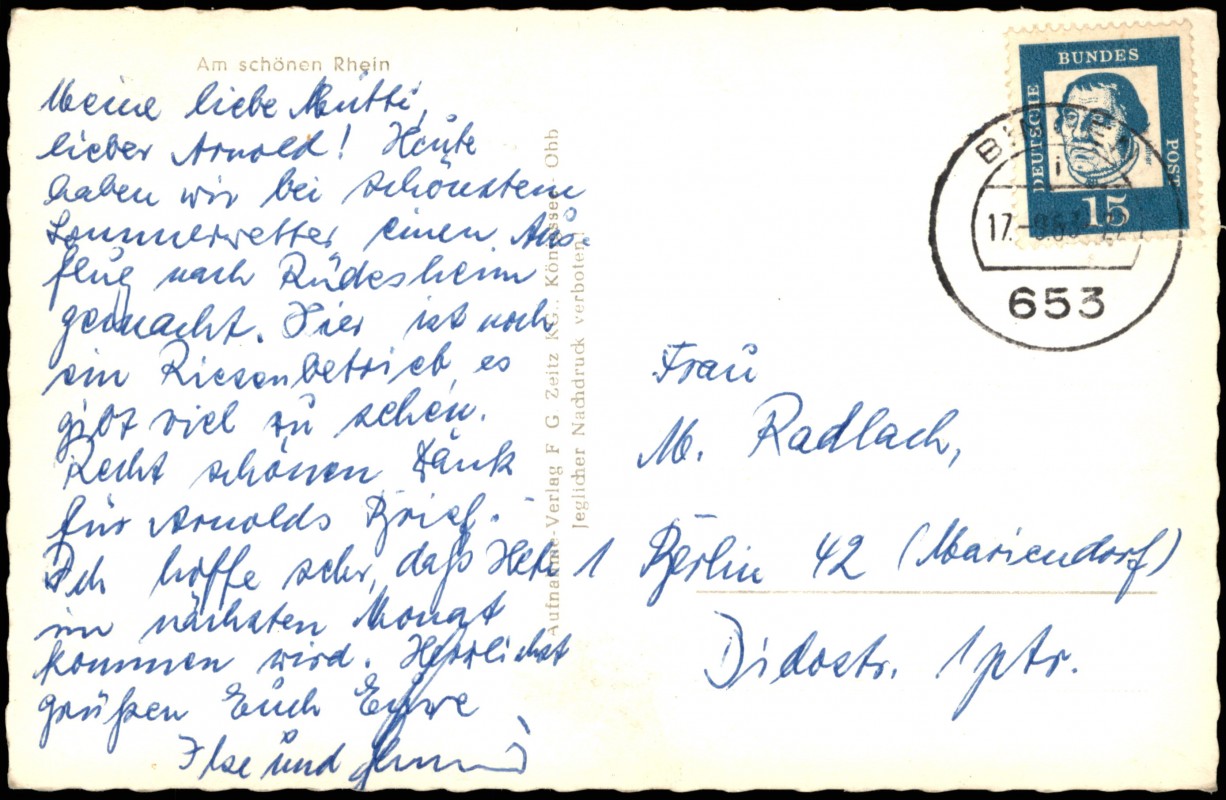 Am schönen Rhein
Meine liebe Mutti,
lieber Arnold! Heute
haben wir bei schönstem
Sommerwetter einen Aus-
flug nach Rüdesheim
gemacht. Hier ist noch
ein Riesenbetrieb, es
gibt viel zu sehen.
Recht schönen Dank
für Arnolds Brief.
Ich hoffe sehr, daß
im nächsten Monat
kommen wird. Herzlichst
grüßen Euch Eure
Ilse und
Aufnahme-Verlag F. G. Zeitz KG., Königssee Obb
Jeglicher Nachdruck verboten!
DEUTSCHE
BUNDES
POST
15
17.
653
Frau
M. Radlach,
1 Berlin 42 (Mariendorf)
Didostr. 1 ptr.